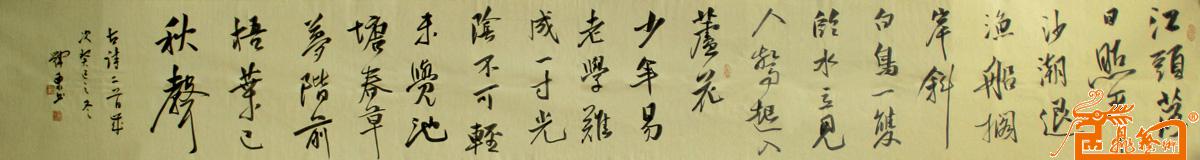 江頭落
日照平
沙潮退
漁船擱
岸斜
白鳥一雙
臨水立見
人驚起入
蘆花
少年易
老學難
成一寸光
陰不可輕
未覺池
塘春草
夢階前
梧葉已
秋聲
古詩二首
次癸巳之冬